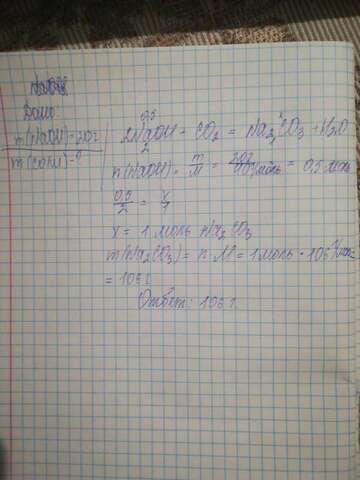 Дано:
m(NaOH) = 20г
m(соли) - ?
0,5 x
2NaOH + CO2 = Na2CO3 + H2O
2 1
n(NaOH) = m/M = 20г/40г/моль = 0,5 моль
0,5/2 = x/1
x = 1 моль Na2CO3
m(Na2CO3) = n · M = 1 моль · 106 г/моль =
= 106 г
Ответ: 106 г.